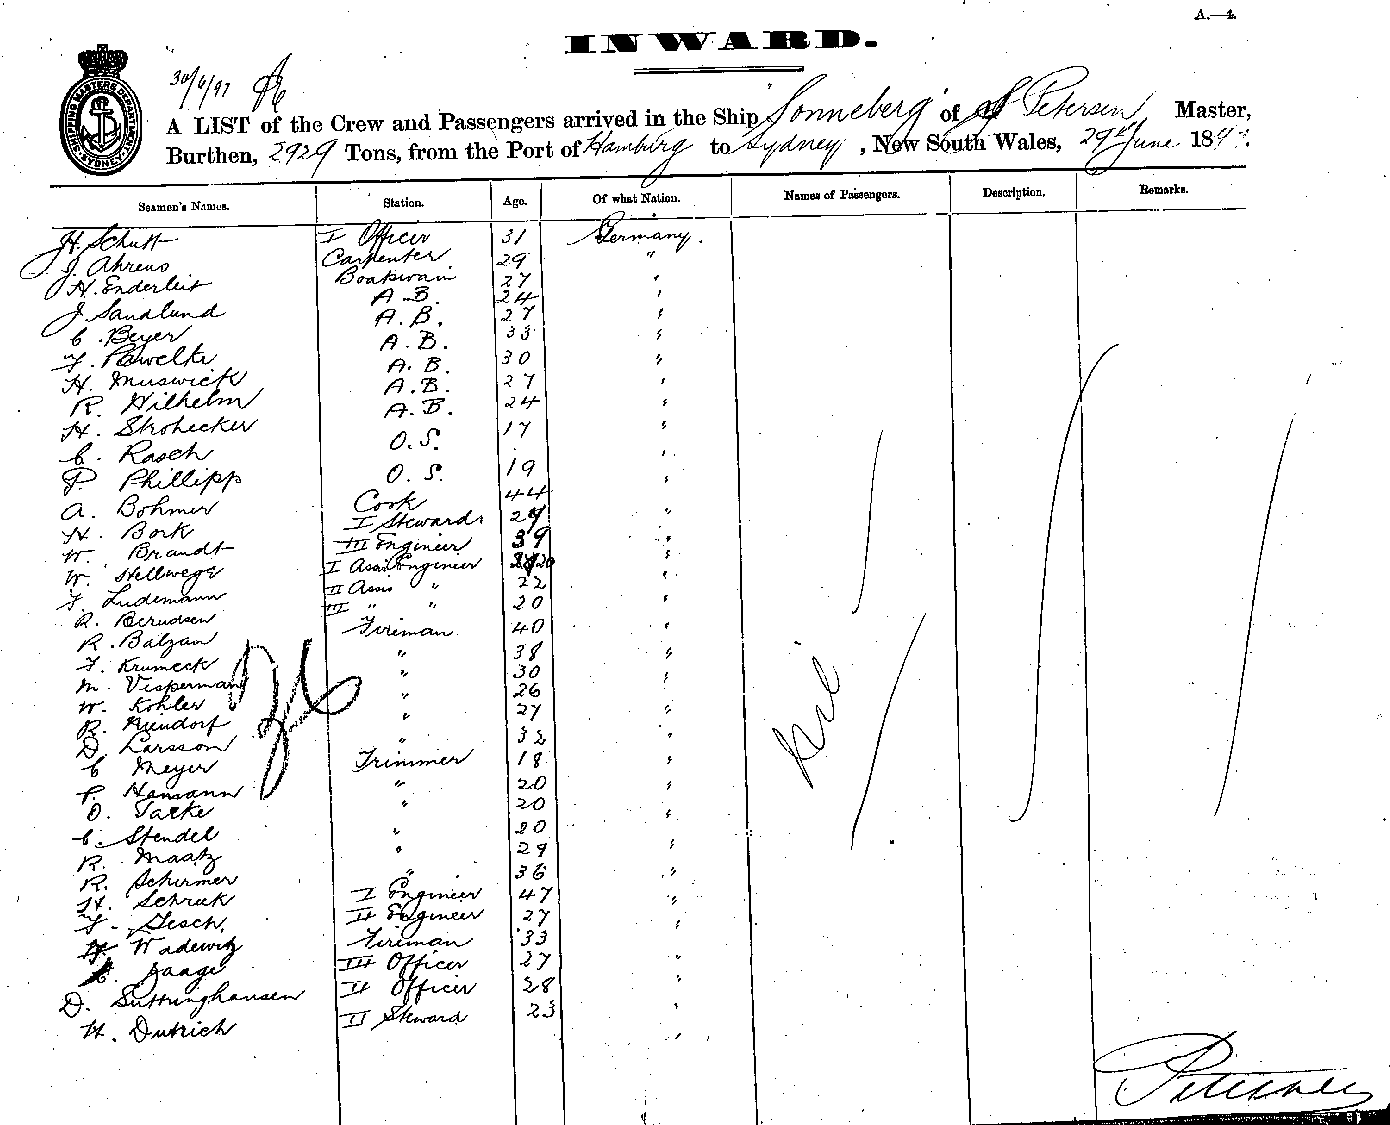 A.—4.
INWARD.
30/6/97
SHIPPING MASTERS DEPARTMENT SYDNEY
A LIST of the Crew and Passengers arrived in the Ship "Sonneberg" of Petersen Master,
Burthen, 2929 Tons, from the Port of Hamburg to Sydney, New South Wales, 29th June 189
Seamen's Names. Station. Age. Of what Nation. Names of Passengers. Description. Remarks.
H. Schutt I Officer 31 Germany.
J. Ahrens Carpenter 29 "
H. Enderleit Boatswain 27 "
J. Sandlund A.B. 24 "
C. Beyer A.B. 27 "
F. Pawelke A.B. 33 "
H. Muswick A.B. 30 "
R. Wilhelm A.B. 27 "
H. Strohecker A.B. 24 "
C. Rasch O.S. 17 "
P. Phillipp O.S. 19 "
A. Bohmer Cook 44 "
H. Bork I Steward "
W. Brandt III Engineer 39 "
W. Hellwege I Assi Engineer "
F. Ludemann II Assi " 22 "
R. Berndsen III " " 20 "
R. Balzan Fireman 40 "
F. Krumeck " 38 "
M. Visperman " 30 "
W. Kohler " 26 "
R. Niendorf " 27 "
D. Larsson " 32 "
C. Meyer Trimmer 18 "
P. Hamann " 20 "
O. Tarke " 20 "
C. Stendel " 20 "
R. Maatz " 29 "
R. Schirmer " 36 "
H. Schruk I Engineer 47 "
F. Gesch. II Engineer 27 "
H. Wadewitz Fireman 33 "
C. Jaage III Officer 27 "
D. Suttringhausen II Officer 28 "
H. Dutrich II Steward 23 "
Nil
Petersen